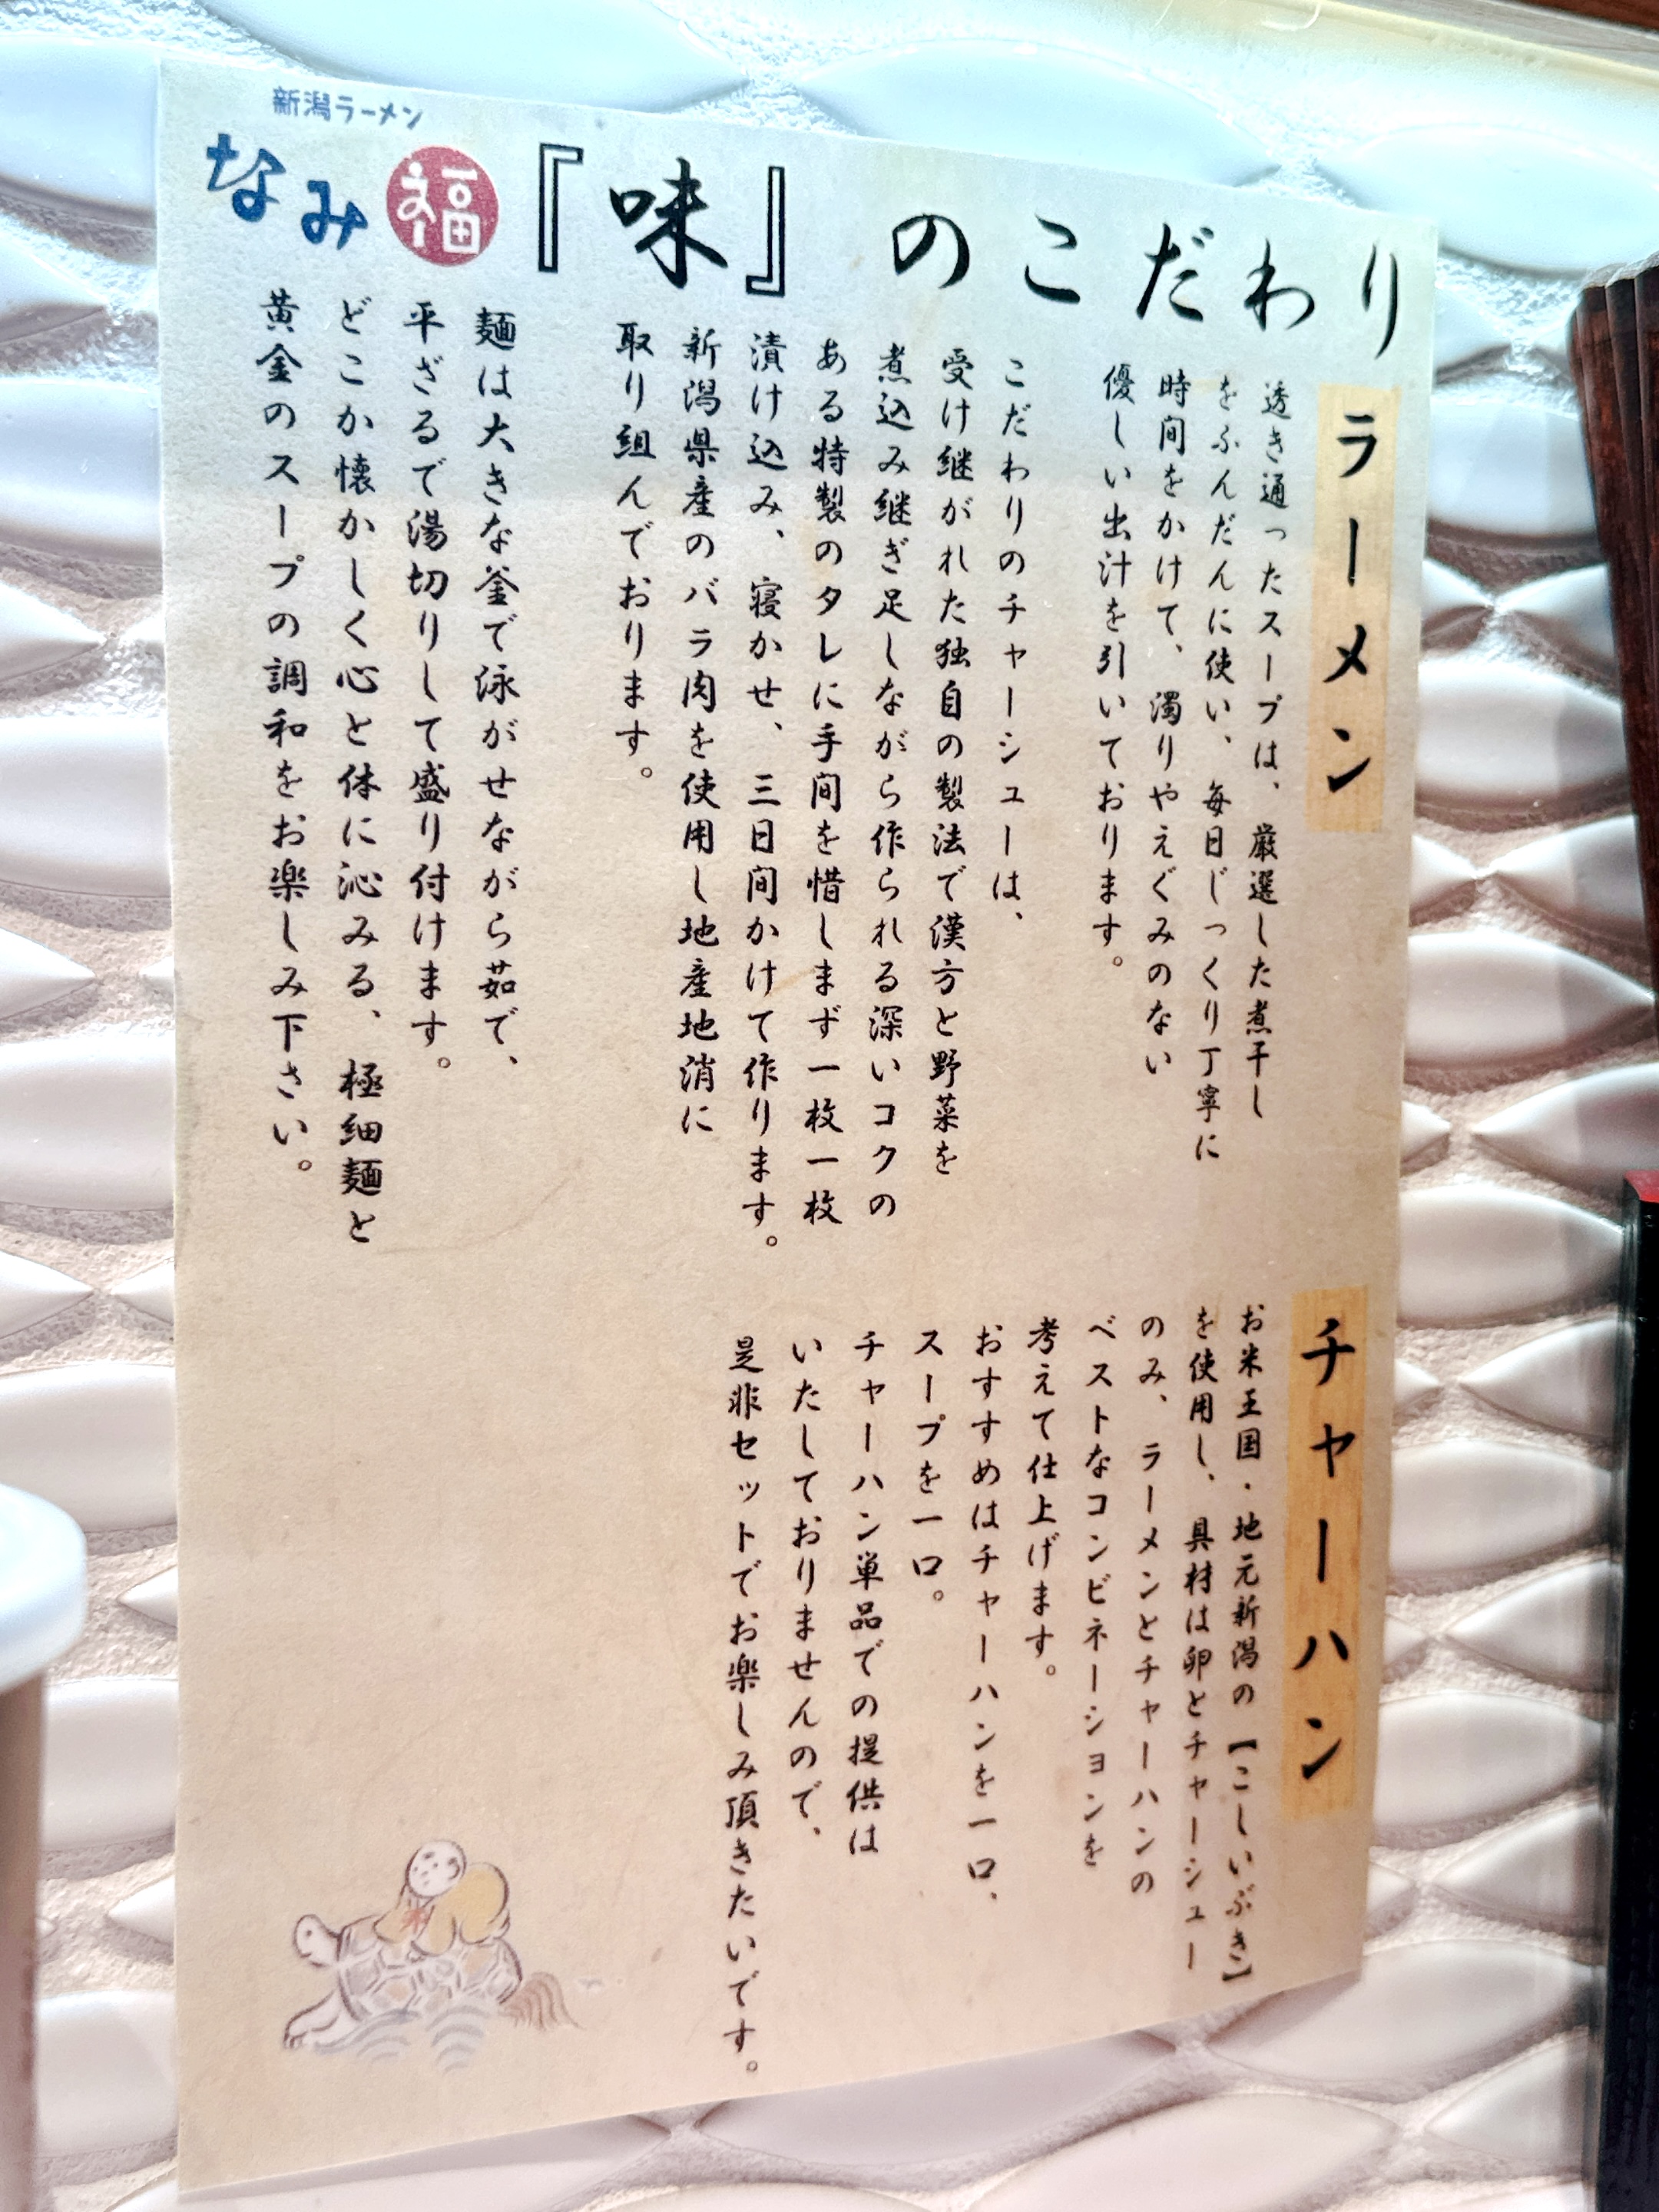 新潟ラーメン
なみ福『味』のこだわり
ラーメン
透き通ったスープは、厳選した煮干し
をふんだんに使い、毎日じっくり丁寧に
時間をかけて、濁りやえぐみのない
優しい出汁を引いております。
こだわりのチャーシューは、
受け継がれた独自の製法で漢方と野菜を
煮込み継ぎ足しながら作られる深いコクの
ある特製のタレに手間を惜しまず一枚一枚
漬け込み、寝かせ、三日間かけて作ります。
新潟県産のバラ肉を使用し地産地消に
取り組んでおります。
麺は大きな釜で泳がせながら茹で、
平ざるで湯切りして盛り付けます。
どこか懐かしく心と体に沁みる、極細麺と
黄金のスープの調和をお楽しみ下さい。
チャーハン
お米王国・地元新潟の【こしいぶき】
を使用し、具材は卵とチャーシュー
のみ、ラーメンとチャーハンの
ベストなコンビネーションを
考えて仕上げます。
おすすめはチャーハンを一口、
スープを一口。
チャーハン単品での提供は
いたしておりませんので、
是非セットでお楽しみ頂きたいです。